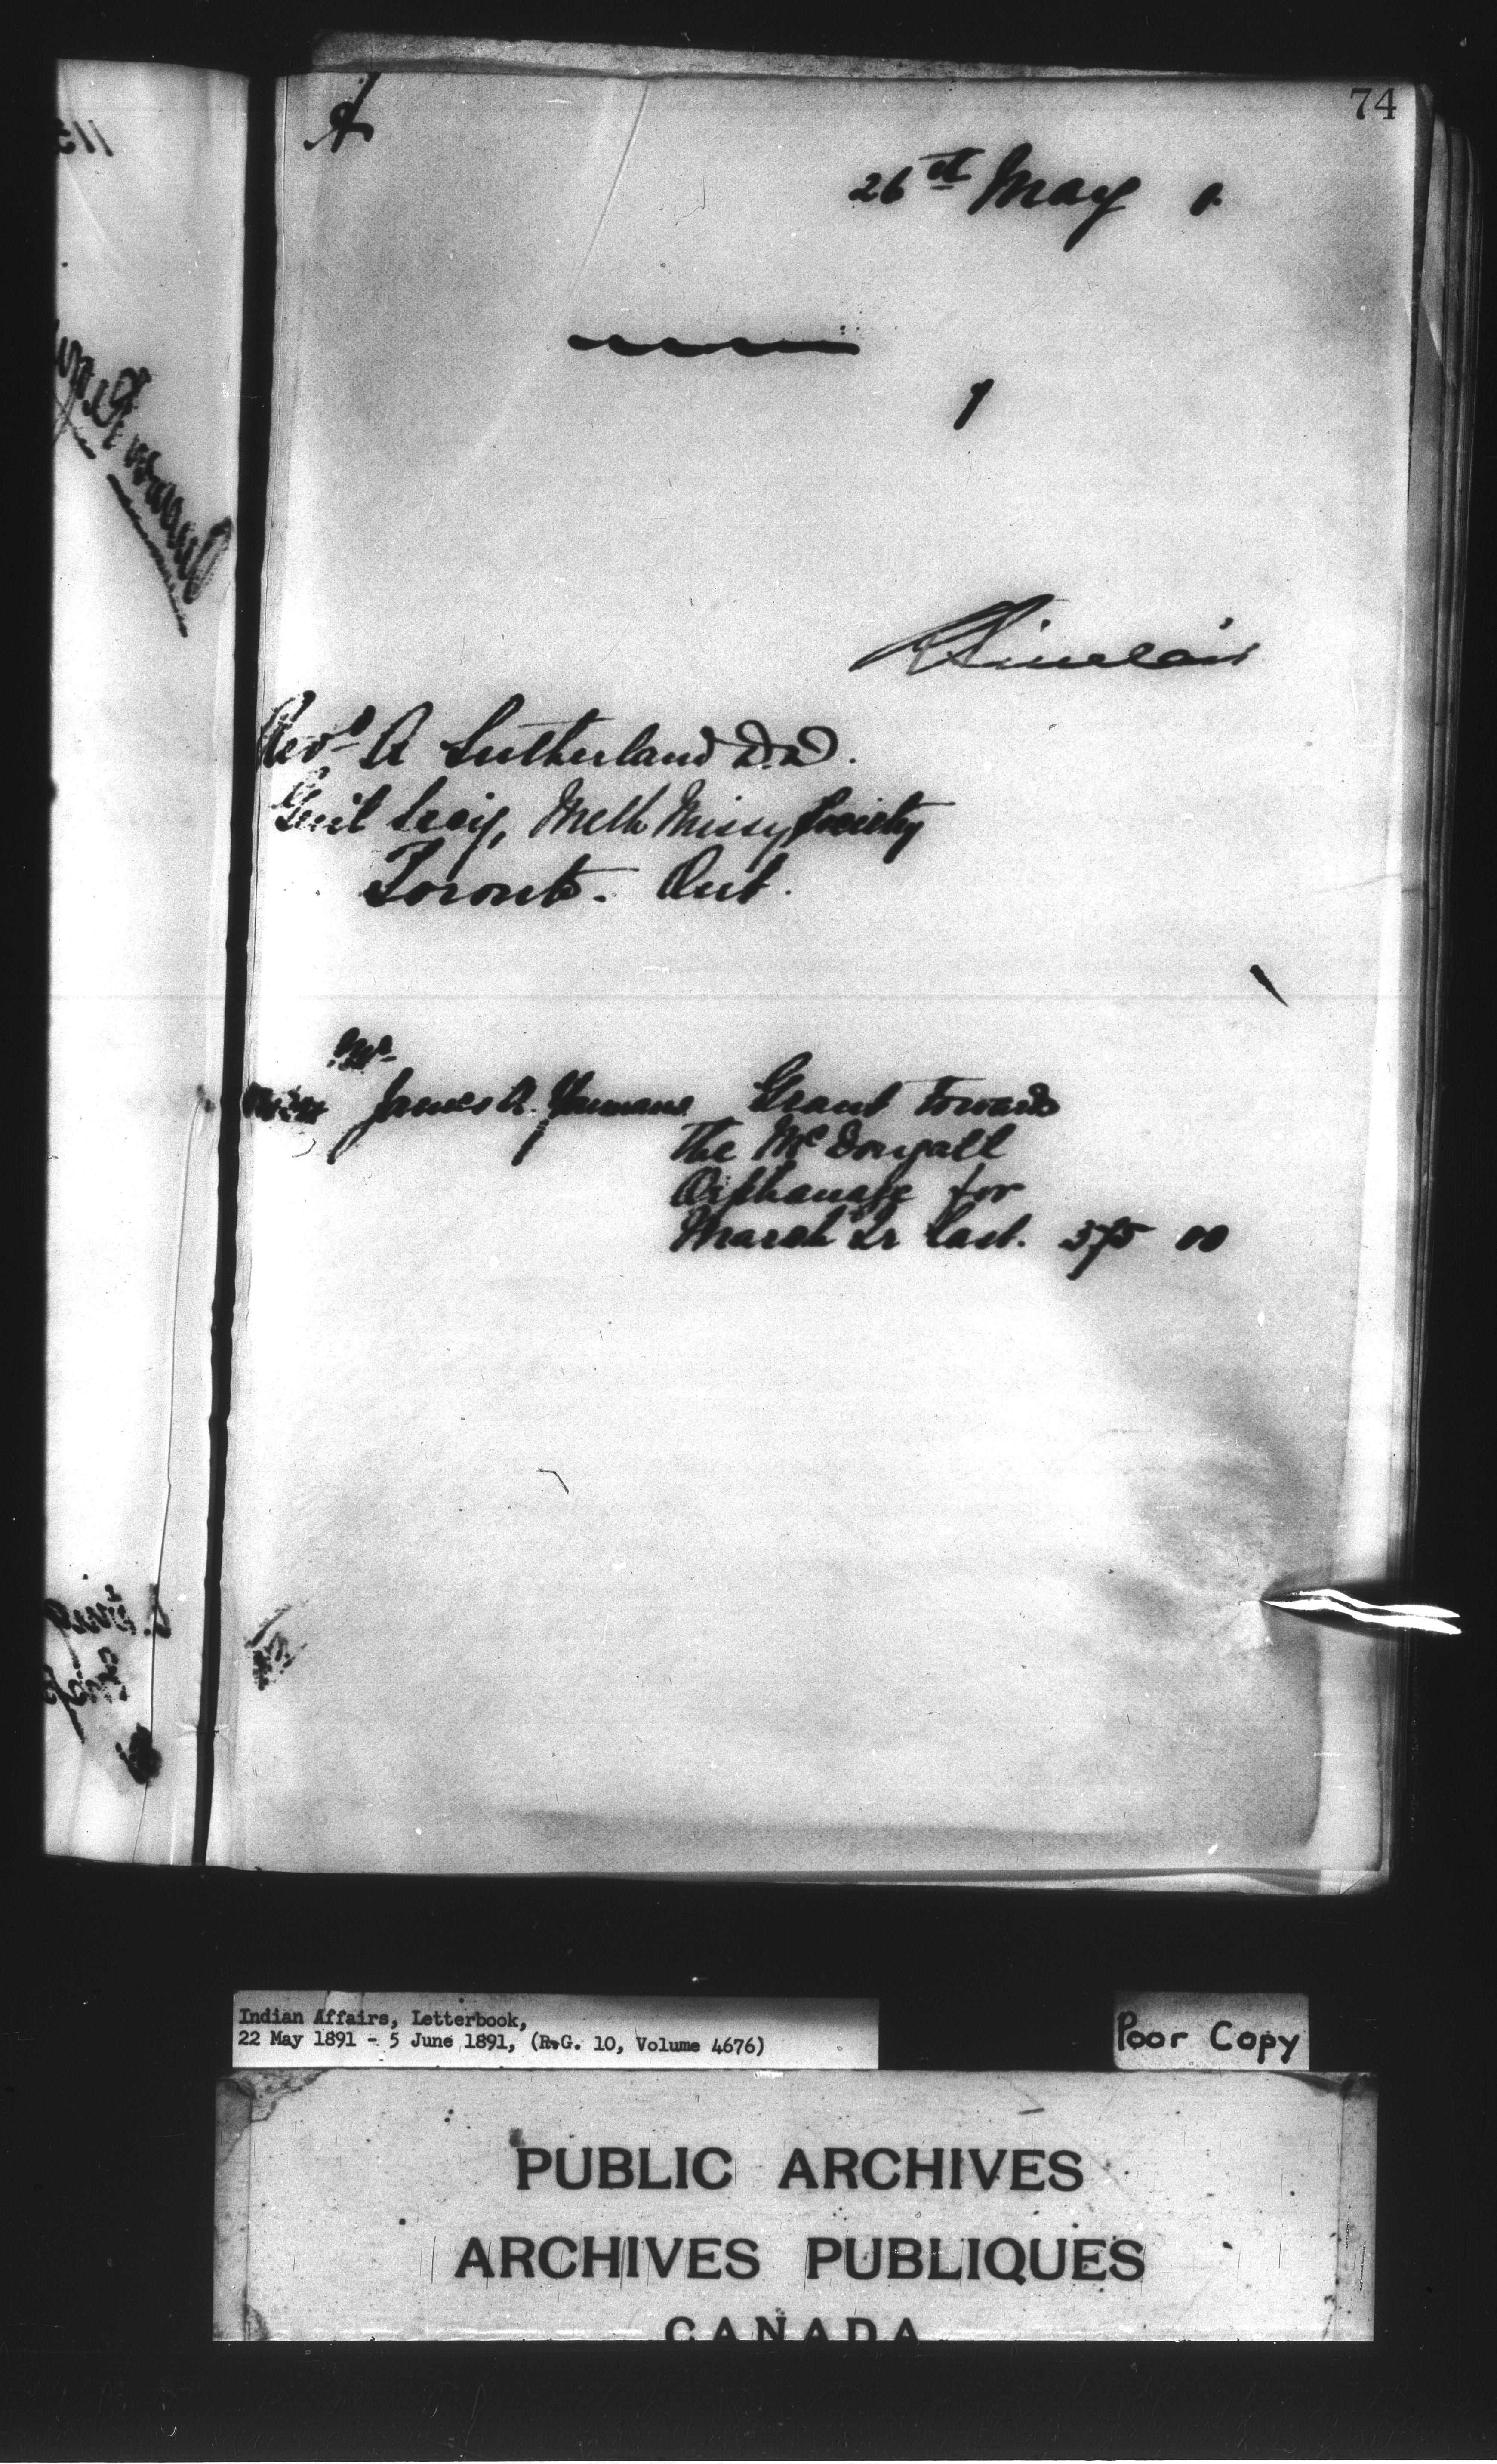 74
26th May 1
1
Sinclair
Revd A Sutherland D.D.
Gen'l Secy, Meth Missy Society
Toronto. Ont.
Mr
James A. Youmans Grant towards
the McDougall
Orphanage for
March Qr last. 375 00
Indian Affairs, Letterbook,
22 May 1891 - 5 June 1891, (R.G. 10, Volume 4676)
Poor Copy
PUBLIC ARCHIVES
ARCHIVES PUBLIQUES
CANADA